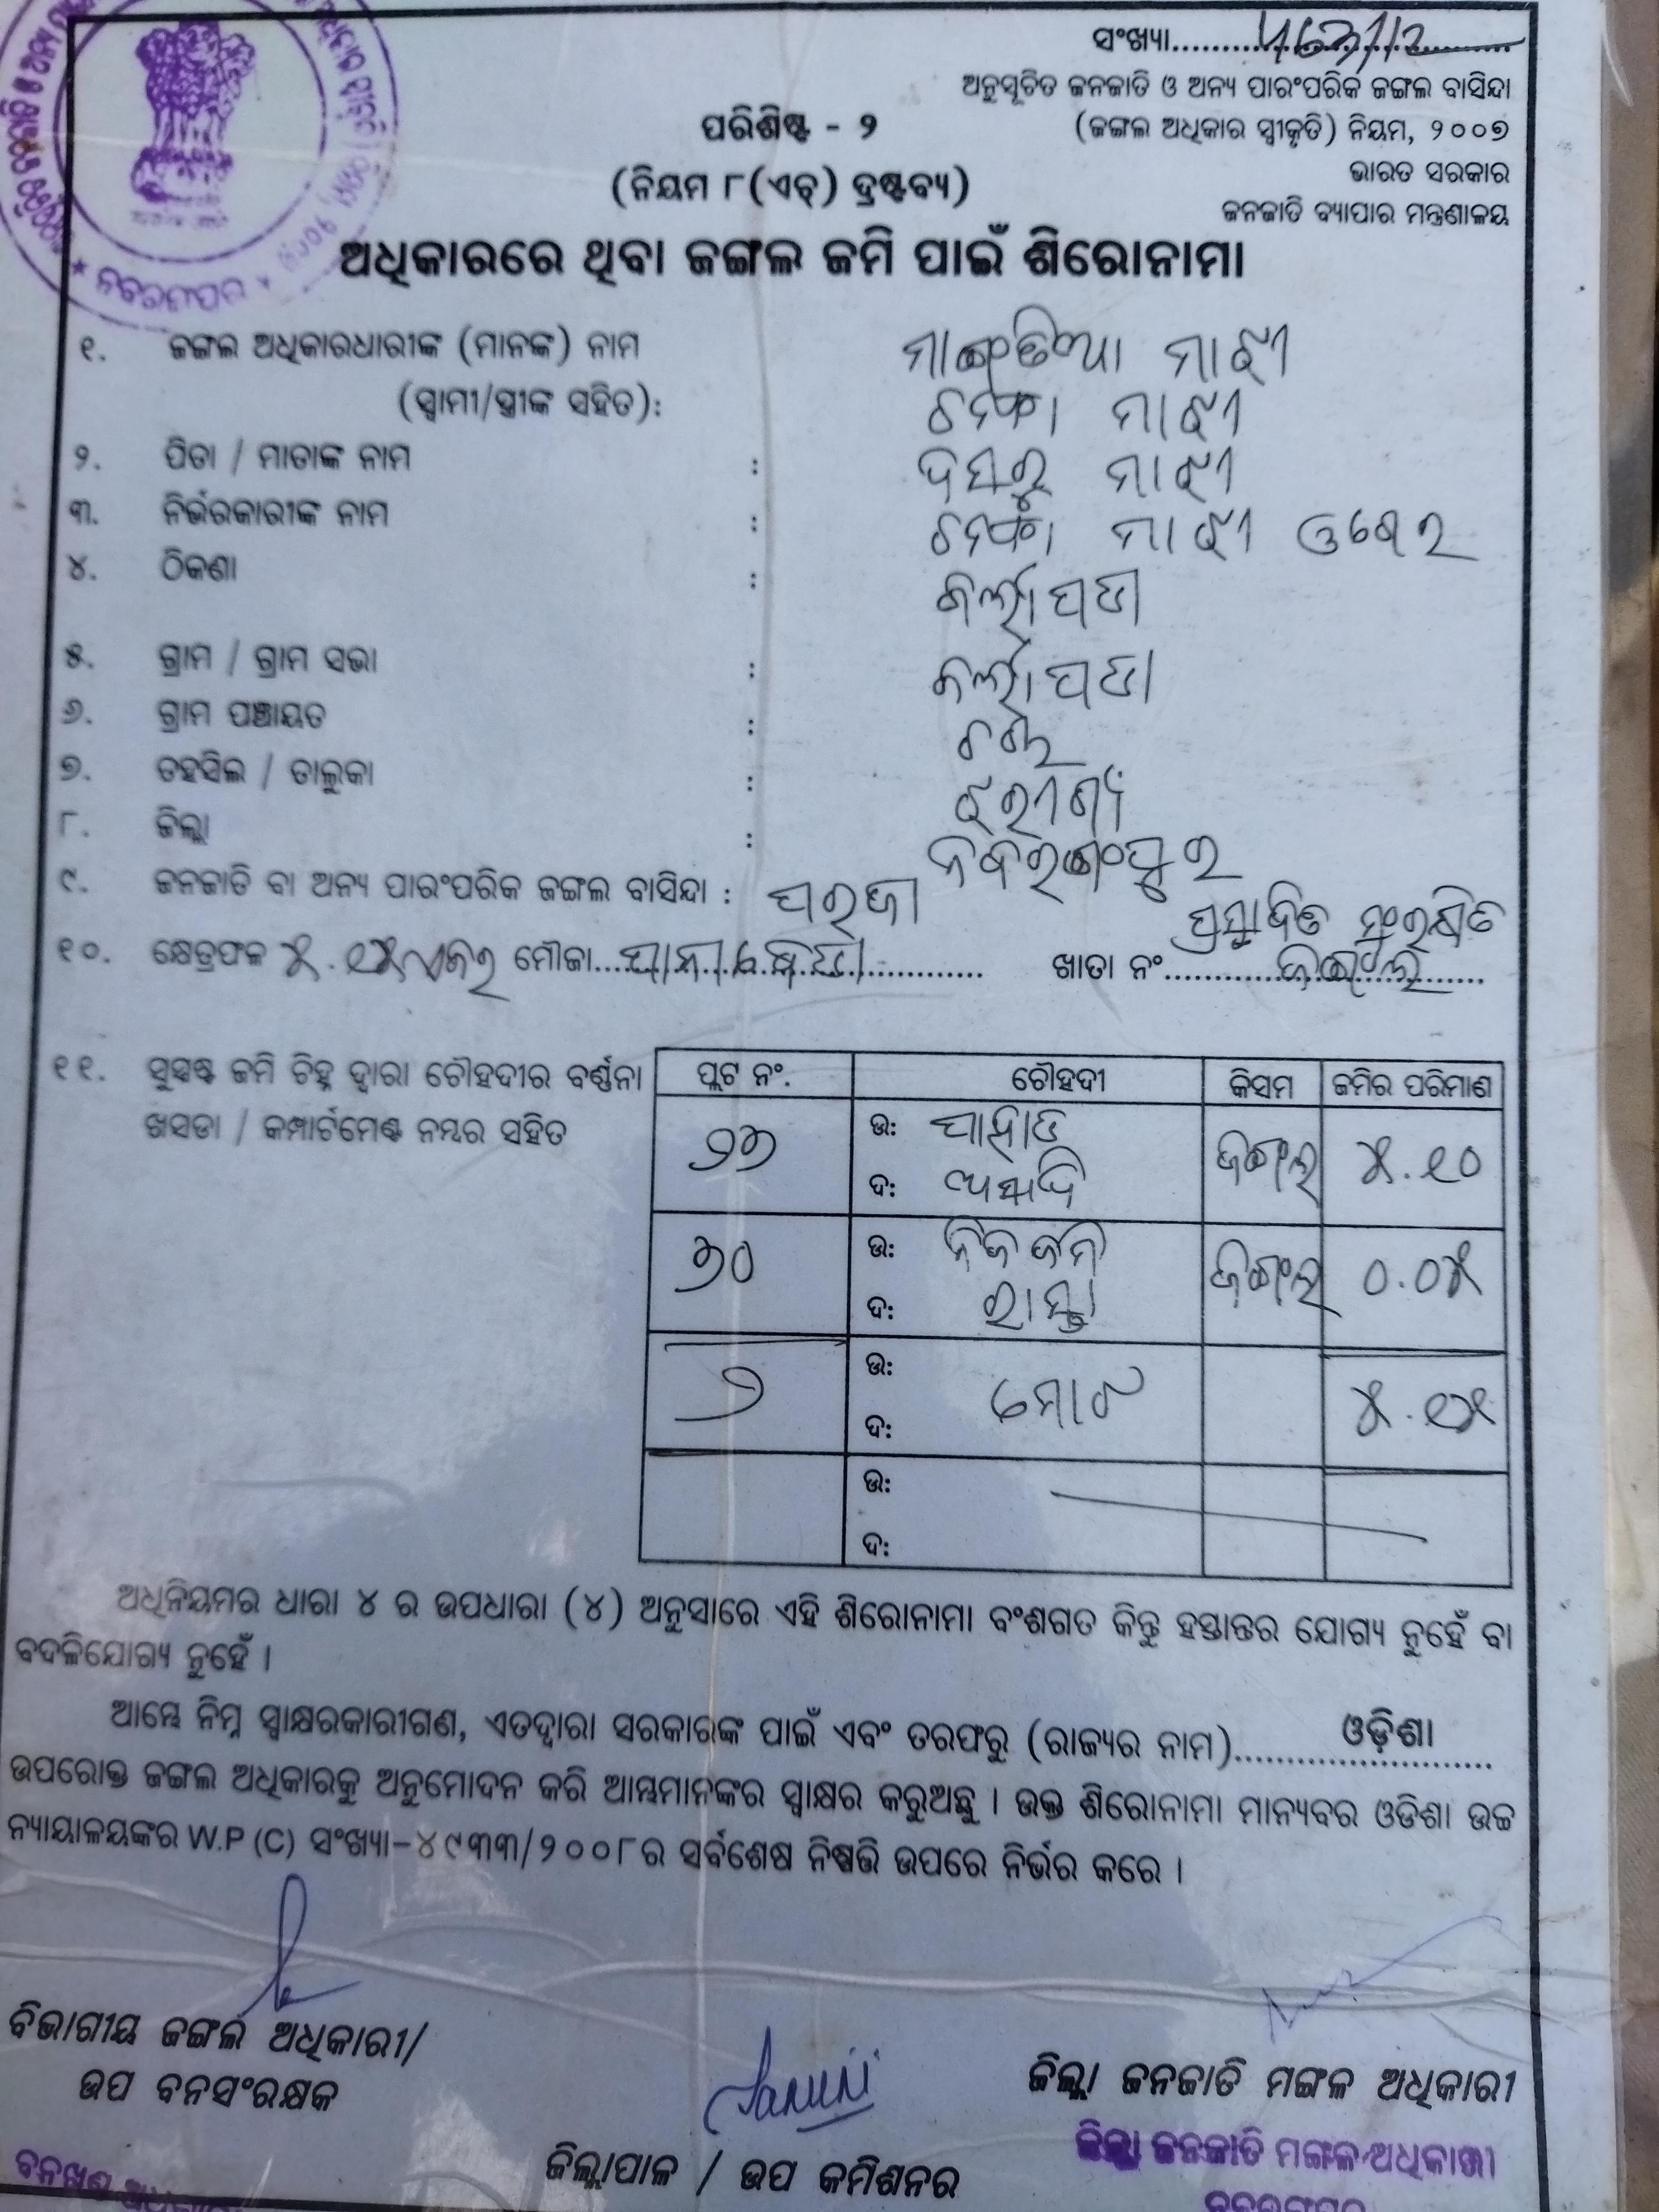 ସଂଖ୍ୟା
ଅନୁସୂଚିତ ଜନଜାତି ଓ ଅନ୍ୟ ପାରଂପରିକ ଜଙ୍ଗଲ ବାସିନ୍ଦା
ପରିଶିଷ୍ଟ - ୨
(ଜଙ୍ଗଲ ଅଧିକାର ସ୍ୱୀକୃତି) ନିୟମ, ୨୦୦୭
ଭାରତ ସରକାର
(ନିୟମ ୮(ଏଚ୍) ଦ୍ରଷ୍ଟବ୍ୟ)
ଜନଜାତି ବ୍ୟାପାର ମନ୍ତ୍ରଣାଳୟ
ଅଧିକାରରେ ଥିବା ଜଙ୍ଗଲ ଜମି ପାଇଁ ଶିରୋନାମା
୧. ଜଙ୍ଗଲ ଅଧିକାରଧାରୀଙ୍କ (ମାନଙ୍କ) ନାମ ମାଝୀ
(ସ୍ୱାମୀ/ସ୍ତ୍ରୀଙ୍କ ସହିତ): ଚମ୍ପା ମାଝୀ
୨. ପିତା / ମାତାଙ୍କ ନାମ : ଦସରୁ ମାଝୀ
୩. ନିର୍ଭରକାରୀଙ୍କ ନାମ : ଚମ୍ପା ମାଝୀ
୪. ଠିକଣା :
୫. ଗ୍ରାମ / ଗ୍ରାମ ସଭା :
୬. ଗ୍ରାମ ପଞ୍ଚାୟତ :
୭. ତହସିଲ / ତାଲୁକା : ଝରୀଗାଁ
୮. ଜିଲ୍ଲା : ନବରଂଗପୁର
୯. ଜନଜାତି ବା ଅନ୍ୟ ପାରଂପରିକ ଜଙ୍ଗଲ ବାସିନ୍ଦା : ପରଜା
ପ୍ରସ୍ତାବିତ ସଂରକ୍ଷିତ
୧୦. କ୍ଷେତ୍ରଫଳ ୫.୧୫ ଏକର ମୌଜା ଖାତା ନଂ ଜଙ୍ଗଲ
୧୧. ସୁସ୍ପଷ୍ଟ ଜମି ଚିହ୍ନ ଦ୍ୱାରା ଚୌହଦୀର ବର୍ଣ୍ଣନା
ଖସଡା / କମ୍ପାର୍ଟମେଣ୍ଟ ନମ୍ବର ସହିତ
ପ୍ଲଟ ନଂ. ଚୌହଦୀ କିସମ ଜମିର ପରିମାଣ
୨୬ ଉ: ପାହାଡ ଜଙ୍ଗଲ ୫.୧୦
ଦ:
୬୦ ଉ: ନିଜ ଜମି ଜଙ୍ଗଲ ୦.୦୫
ଦ: ରାସ୍ତା
୨ ଉ: ମୋଟ ୫.୧୫
ଦ:
ଉ:
ଦ:
ଅଧିନିୟମର ଧାରା ୪ ର ଉପଧାରା (୪) ଅନୁସାରେ ଏହି ଶିରୋନାମା ବଂଶଗତ କିନ୍ତୁ ହସ୍ତାନ୍ତର ଯୋଗ୍ୟ ନୁହେଁ ବା
ବଦଳିଯୋଗ୍ୟ ନୁହେଁ ।
ଆମ୍ଭେ ନିମ୍ନ ସ୍ୱାକ୍ଷରକାରୀଗଣ, ଏତଦ୍ଦ୍ୱାରା ସରକାରଙ୍କ ପାଇଁ ଏବଂ ତରଫରୁ (ରାଜ୍ୟର ନାମ) ଓଡ଼ିଶା
ଉପରୋକ୍ତ ଜଙ୍ଗଲ ଅଧିକାରକୁ ଅନୁମୋଦନ କରି ଆମ୍ଭମାନଙ୍କର ସ୍ୱାକ୍ଷର କରୁଅଛୁ । ଉକ୍ତ ଶିରୋନାମା ମାନ୍ୟବର ଓଡିଶା ଉଚ୍ଚ
ନ୍ୟାୟାଳୟଙ୍କର W.P (C) ସଂଖ୍ୟା-୪୯୩୩/୨୦୦୮ର ସର୍ବଶେଷ ନିଷ୍ପତ୍ତି ଉପରେ ନିର୍ଭର କରେ ।
ବିଭାଗୀୟ ଜଙ୍ଗଲ ଅଧିକାରୀ/
ଉପ ବନସଂରକ୍ଷକ
ଜିଲ୍ଲାପାଳ / ଉପ କମିଶନର
ଜିଲ୍ଲା ଜନଜାତି ମଙ୍ଗଳ ଅଧିକାରୀ
ଜିଲ୍ଲା ଜନଜାତି ମଙ୍ଗଳ ଅଧିକାରୀ
ନବରଙ୍ଗପୁର